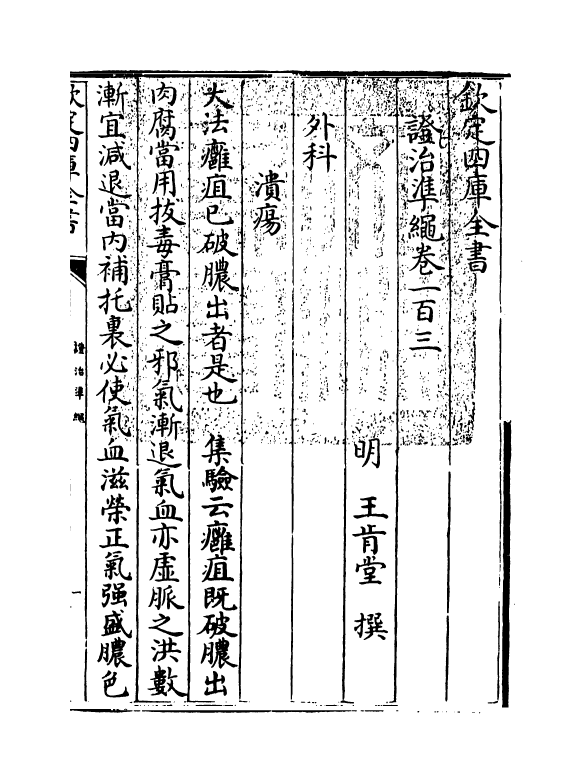 欽定四庫全書
證治準繩卷一百三
明 王肯堂 撰
外科
潰瘍
大法癰疽已破膿出者是也 集驗云癰疽既破膿出
肉腐當用拔毒膏貼之邪氣漸退氣血亦虛脈之洪數
漸宜減退當内補托裏必使氣血滋榮正氣强盛膿色
欽定四庫全書
證治準繩
一